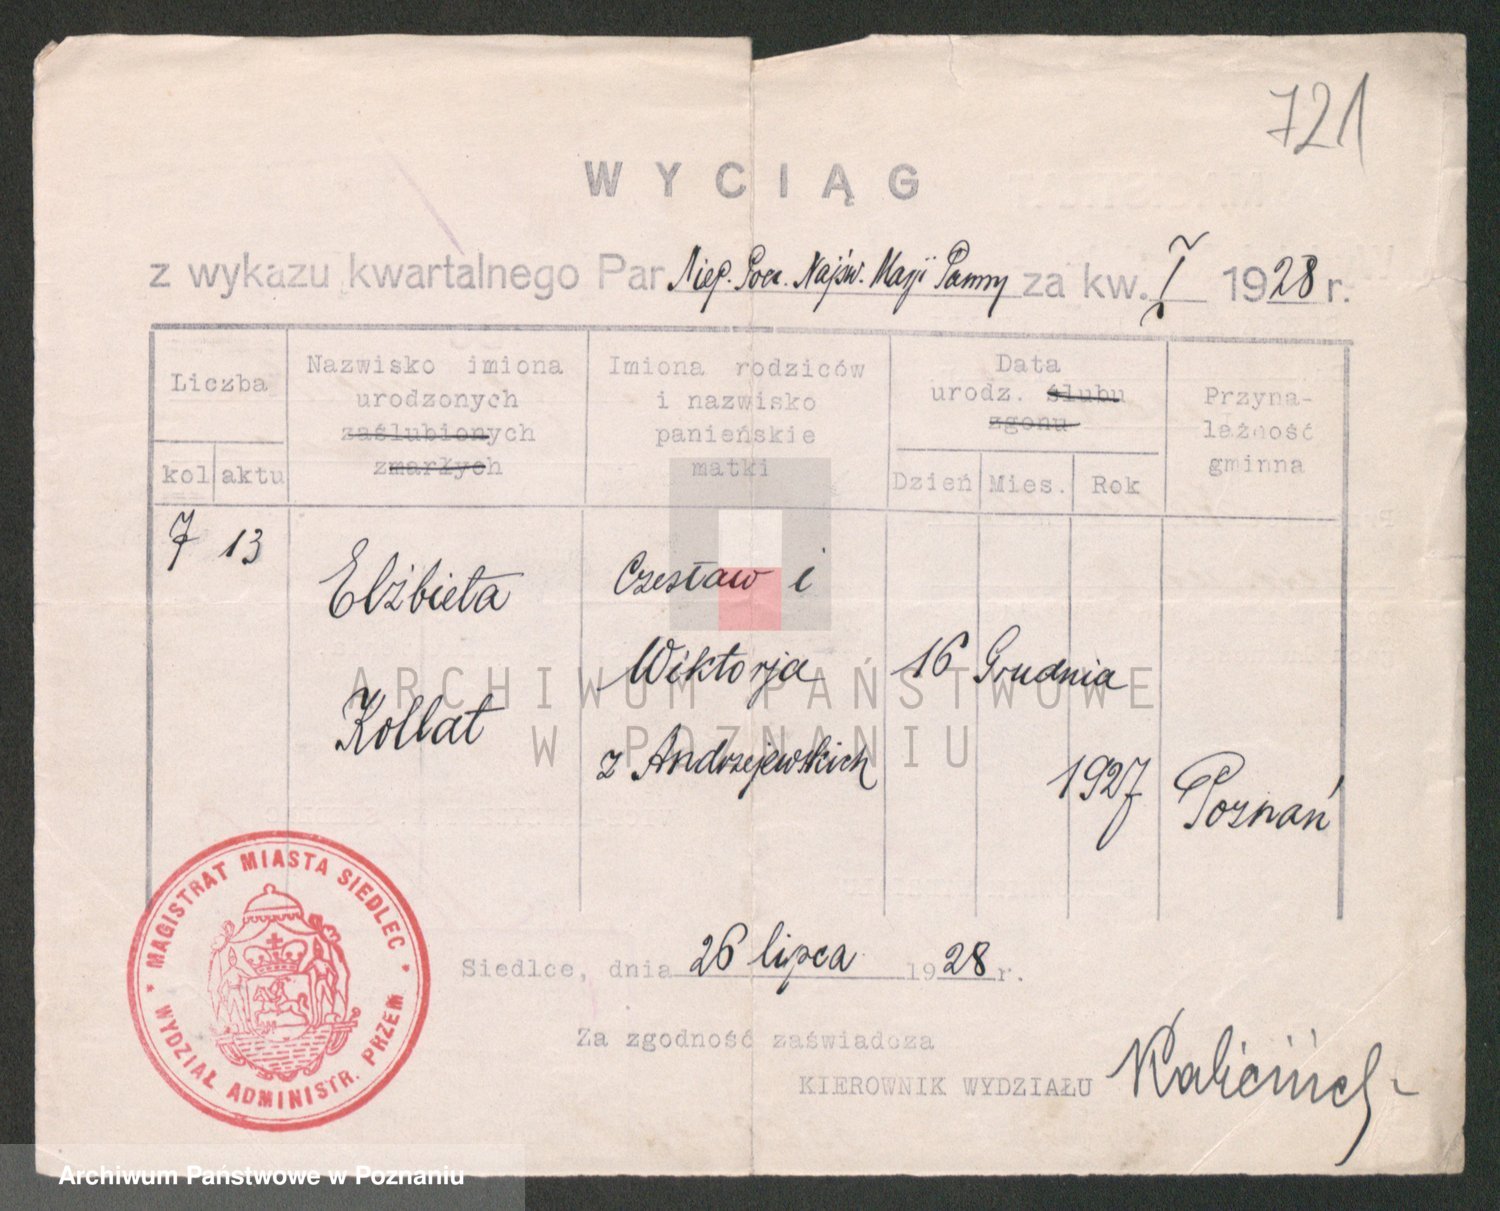 721
WYCIĄG
z wykazu kwartalnego Par. Niep. Pocz. Najśw. Marji Panny za kw. I 1928 r.
Liczba
kol aktu
Nazwisko imiona
urodzonych
zaślubionych
zmarłych
Imiona rodziców
i nazwisko
panieńskie
matki
Data
urodz. ślubu
zgonu
Dzień Mies. Rok
Przyna-
leżność
gminna
7 13
Elżbieta
Kollat
Czesław i
Wiktorja
z Andrzejewskich
16 Grudnia
1927
Poznań
ARCHIWUM PAŃSTWOWE
W POZNANIU
* MAGISTRAT MIASTA SIEDLEC *
WYDZIAŁ ADMINISTR. PRZEM
Siedlce, dnia 26 lipca 1928 r.
Za zgodność zaświadcza
KIEROWNIK WYDZIAŁU
Archiwum Państwowe w Poznaniu